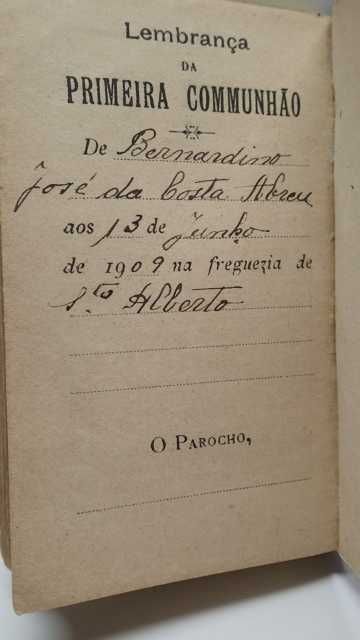 Lembrança
DA
PRIMEIRA COMMUNHÃO
De Bernardino
José da Costa Abreu
aos 13 de Junho
de 1909 na freguezia de
S.to Alberto
O PAROCHO,